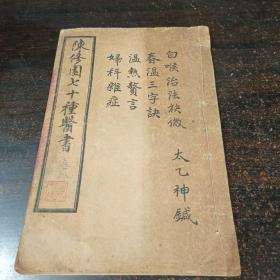 陳修園七十種醫書
白喉治法抉微
太乙神鍼
春溫三字訣
溫熱贅言
婦科雜症